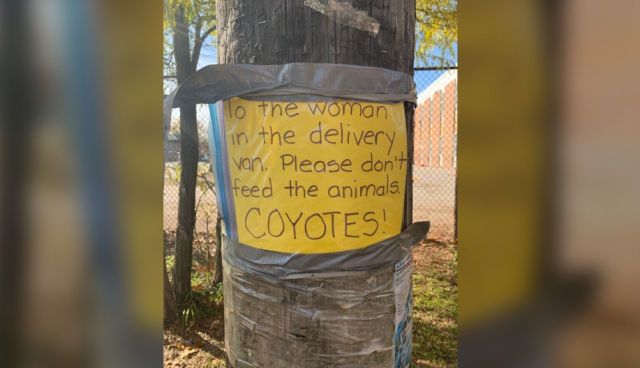 To the woman
in the delivery
van. Please don't
feed the animals.
COYOTES!